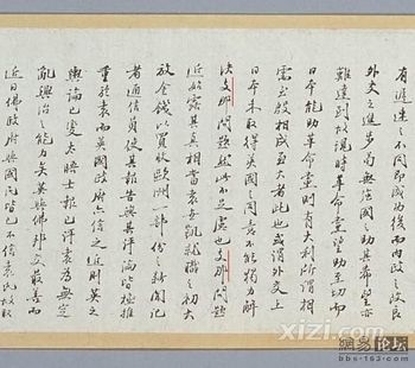 有遲速之不同即成功後而內政之改良
外交之進步苟無法國之助其希望亦
難達到故現時革命黨望助至切而
日本能助革命黨則有大利所謂相
需至殷相成至大者此也或謂外交上
日本未取得英國之同意不能獨力解
決支那問題然此不足慮也支那問題
近始露其真相當袁世凱就職之初大
放金錢以買收歐洲一部份之新聞記
者通信員使其報告與其評論皆極推
重於袁而英國政府亦信之近則英之
輿論已變太晤士報已評袁為無定
亂興治之能力矣英與佛邦交最善而
近日佛政府與國民皆已不信袁氏故
xizi.com
網易 論壇
bbs.163.com